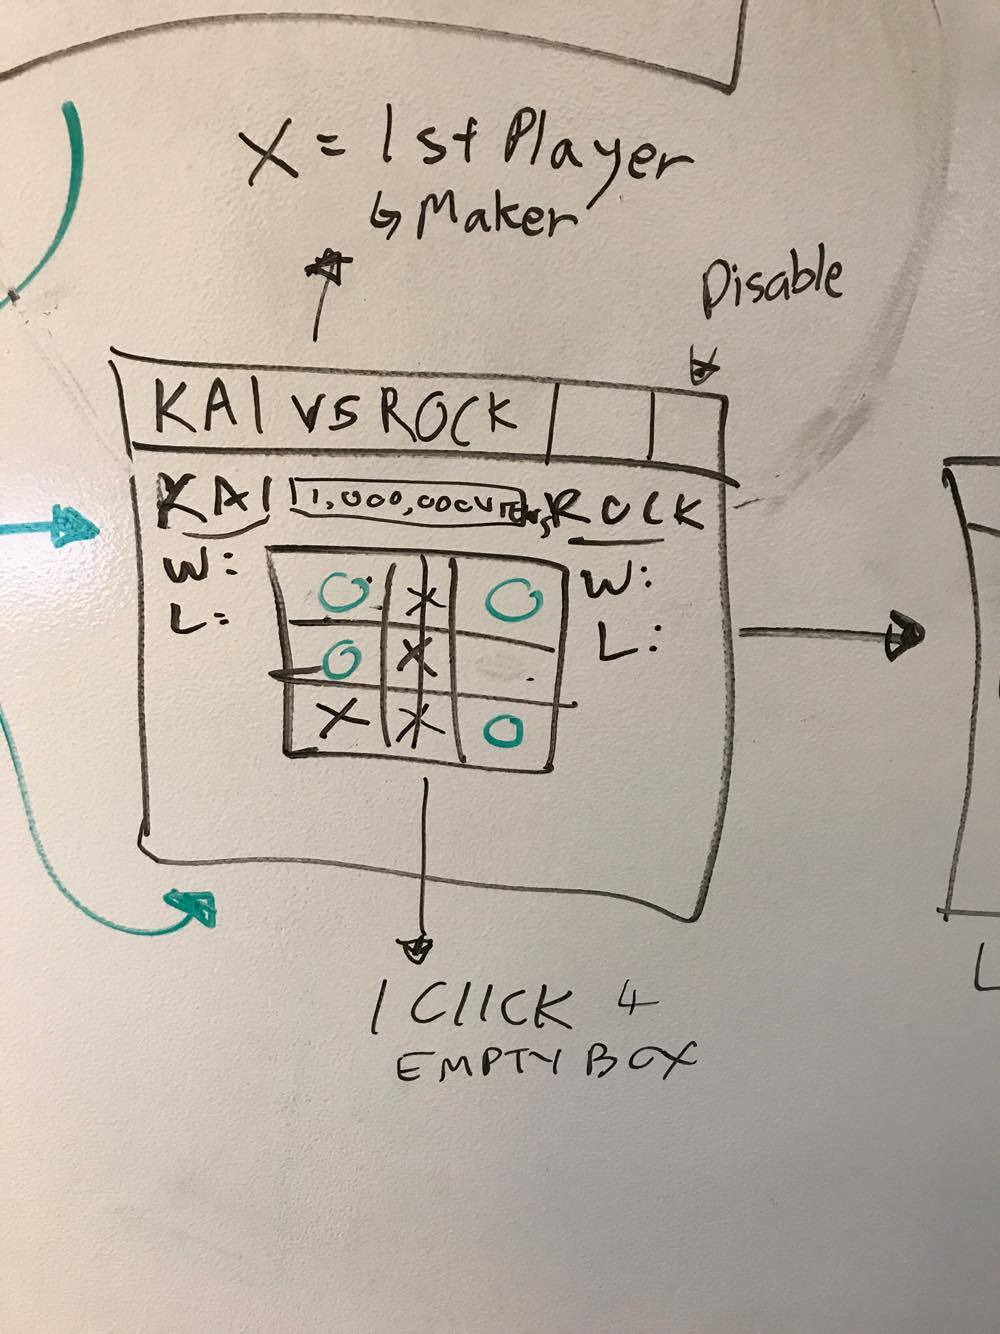 X = 1st Player
↳ Maker
Disable
KAI VS ROCK
KAI 11,000,000 ROCK
W: W:
L: L:
O X O
O X
X X O
1 CLICK 4
EMPTY BOX
L